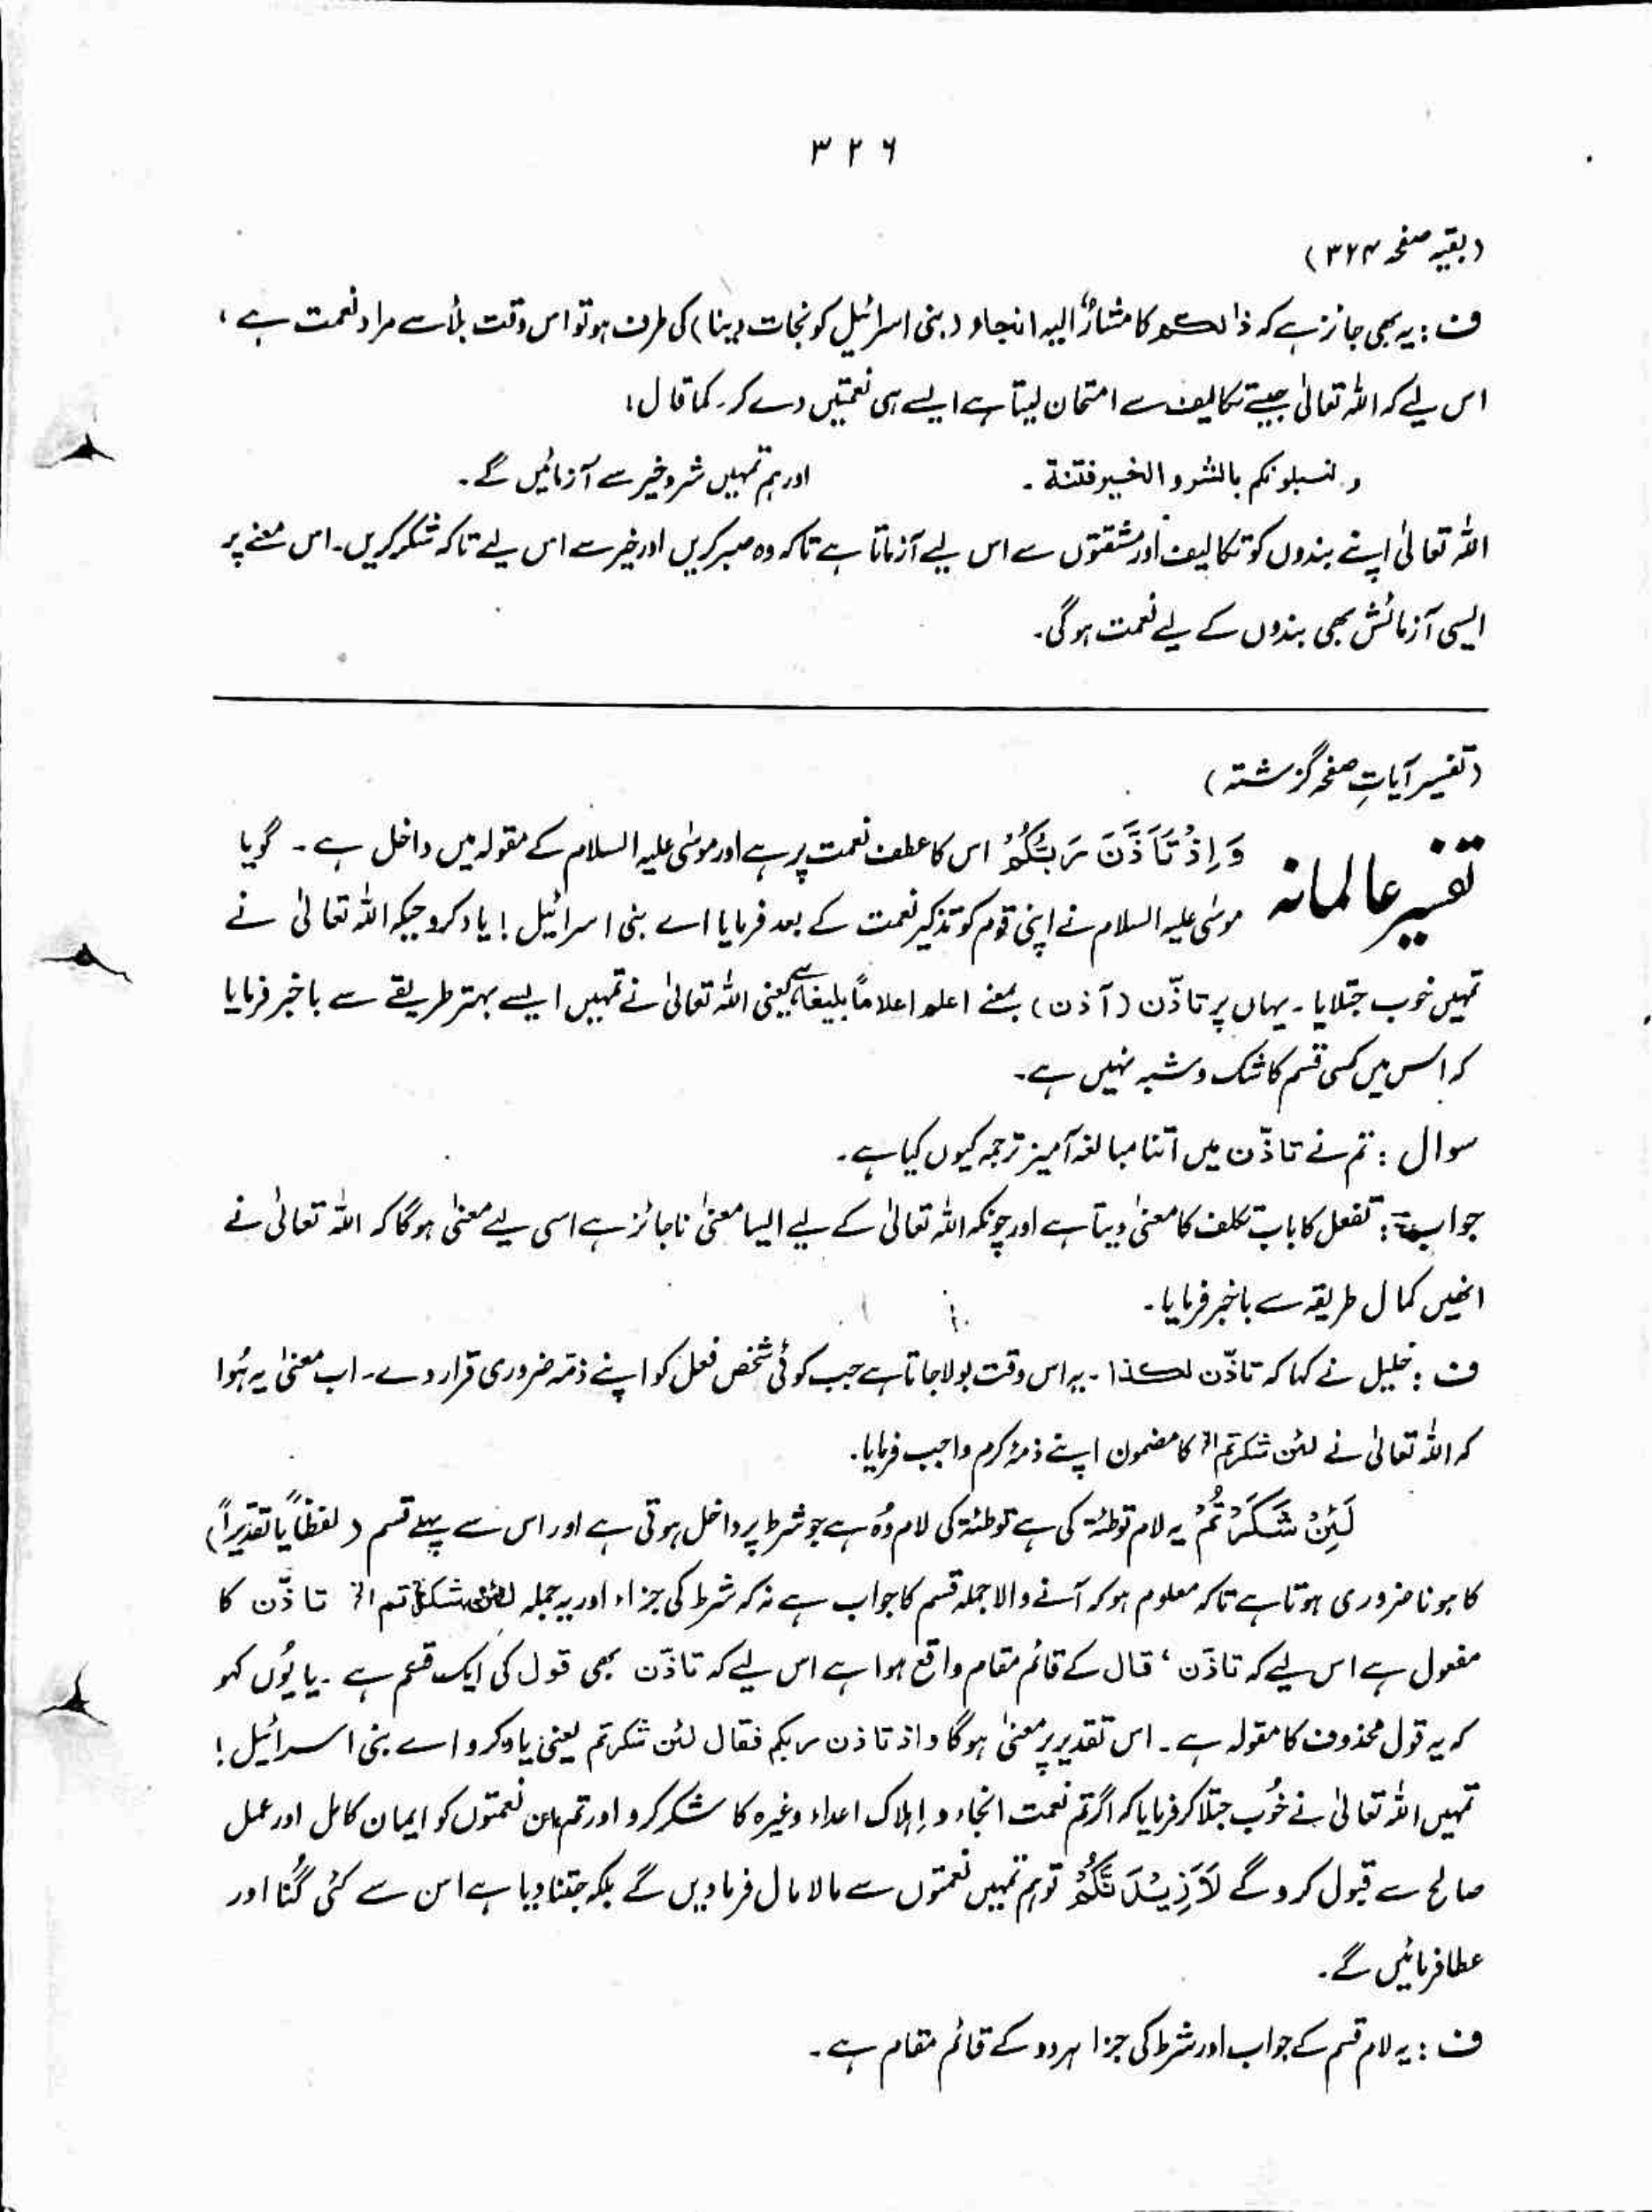 ۳۲۶
(بقیہ صفحہ ۳۲۴)
ف : یہ بھی جائز ہے کہ ذالکم کا مشارٌ الیہ انجاء (بنی اسرائیل کو نجات دینا) کی طرف ہو تو اس وقت بلاء سے مراد نعمت ہے ،
اس لیے کہ اللہ تعالیٰ جیسے تکالیف سے امتحان لیتا ہے ایسے ہی نعمتیں دے کر۔ کما قال :
و لنبلونکم بالشر و الخیر فتنة ۔ اور ہم تمہیں شر و خیر سے آزمائیں گے ۔
اللہ تعالیٰ اپنے بندوں کو تکالیف اور مشقتوں سے اس لیے آزماتا ہے تاکہ وہ صبر کریں اور خیر سے اس لیے تاکہ شکر کریں۔ اس معنے پر
ایسی آزمائش بھی بندوں کے لیے نعمت ہوگی۔
(تفسیر آیاتِ صفحہ گزشتہ)
تفسیر عالمانہ وَاِذْ تَاَذَّنَ رَبُّكُمْ اس کا عطف نعمت پر ہے اور موسٰی علیہ السلام کے مقولہ میں داخل ہے ۔ گویا
موسٰی علیہ السلام نے اپنی قوم کو تذکیر نعمت کے بعد فرمایا اے بنی اسرائیل ! یاد کرو جبکہ اللہ تعالیٰ نے
تمہیں خوب جتلایا ۔ یہاں پر تاذّن (آذن) بمعنے اعلم اعلامًا بلیغًا ہے یعنی اللہ تعالیٰ نے تمہیں ایسے بہتر طریقے سے باخبر فرمایا
کہ اس میں کسی قسم کا شک و شبہ نہیں ہے۔
سوال : تم نے تاذّن میں اتنا مبالغہ آمیز ترجمہ کیوں کیا ہے ۔
جواب : تفعل کا باب تکلف کا معنیٰ دیتا ہے اور چونکہ اللہ تعالیٰ کے لیے ایسا معنیٰ ناجائز ہے اسی لیے معنیٰ ہوگا کہ اللہ تعالیٰ نے
انھیں کمال طریقہ سے باخبر فرمایا ۔
ف : خلیل نے کہا کہ تاذّن لکذا ۔ یہ اس وقت بولا جاتا ہے جب کوئی شخص فعل کو اپنے ذمّہ ضروری قرار دے ۔ اب معنیٰ یہ ہُوا
کہ اللہ تعالیٰ نے لئن شکرتم الخ کا مضمون اپنے ذمۂ کرم واجب فرمایا ۔
لَئِنْ شَكَرْتُمْ یہ لام توطئة کی ہے توطئة کی لام وُہ ہے جو شرط پر داخل ہوتی ہے اور اس سے پہلے قسم (لفظًا یا تقدیرًا)
کا ہونا ضروری ہوتا ہے تاکہ معلوم ہو کہ آنے والا جملہ قسم کا جواب ہے نہ کہ شرط کی جزاء اور یہ جملہ لئن شکرتم الخ تاذّن کا
مفعول ہے اس لیے کہ تاذّن ، قال کے قائم مقام واقع ہوا ہے اس لیے کہ تاذّن بھی قول کی ایک قسم ہے ۔ یا یُوں کہو
کہ یہ قول محذوف کا مقولہ ہے ۔ اس تقدیر پر معنیٰ ہوگا و اذ تاذن ربکم فقال لئن شکرتم یعنی یاد کرو اے بنی اسرائیل !
تمہیں اللہ تعالیٰ نے خُوب جتلا کر فرمایا کہ اگر تم نعمت انجاء و اہلاک اعداء وغیرہ کا شکر کرو اور تم ان نعمتوں کو ایمان کامل اور عمل
صالح سے قبول کرو گے لَاَزِيْدَنَّكُمْ تو ہم تمہیں نعمتوں سے مالا مال فرما دیں گے بلکہ جتنا دیا ہے اس سے کئی گُنا اور
عطا فرمائیں گے ۔
ف : یہ لام قسم کے جواب اور شرط کی جزا ہر دو کے قائم مقام ہے ۔